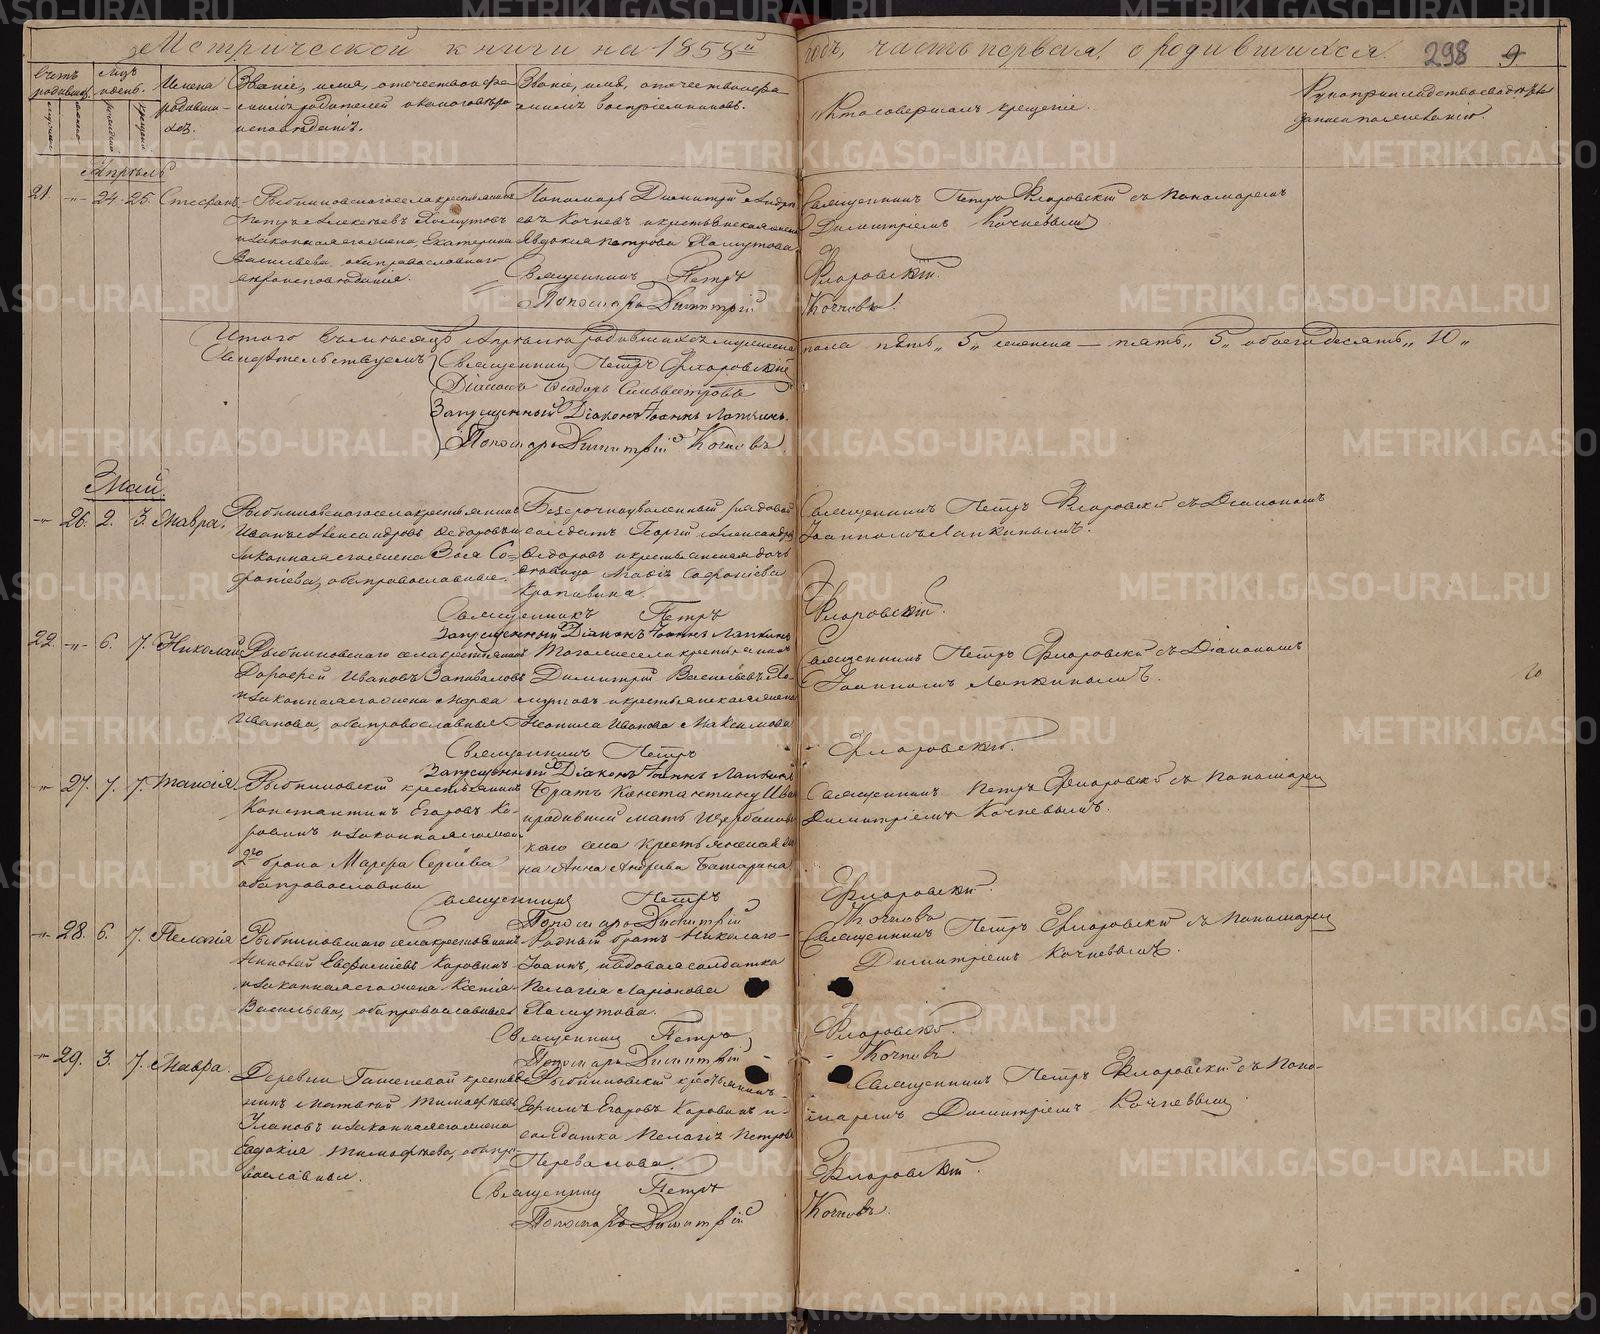 Метрической книги на 1858й годъ, часть первая, о родившихся.
298
9
Счетъ родившихся
Мѣс. и день
Имена родившихся.
Званіе, имя, отечество и фамилія родителей и какого вѣроисповѣданія.
Званіе, имя, отечество и фамилія воспріемниковъ.
Кто совершалъ крещеніе.
Апрѣль
21. -"- 24. 25. Стефанъ
Рыбниковскаго села крестьянинъ
Петръ Алексѣевъ Хомутовъ
и законная его жена Екатерина
Васильева, оба православнаго
вѣроисповѣданія.
Пономарь Димитрій Андре-
евъ Кочневъ и крестьянская жена
Авдокія Петрова Хомутова
Священникъ Петръ Флоровскій съ пономаремъ
Димитріемъ Кочневымъ
Священникъ Петръ Флоровскій.
Пономарь Димитрій Кочневъ.
Итого въ мѣсяцѣ Апрѣлѣ родившихся мужеска пола пять „5„ женска — пять „5„ обоего десять „10„
Свидѣтельствуемъ
Священникъ Петръ Флоровскій
Діаконъ Ѳеодоръ Сильвестровъ
Запрещенный Діаконъ Іоаннъ Лапкинъ.
Пономарь Димитрій Кочневъ
Май.
-"- 26. 2. 3. Мавра.
Рыбниковскаго села крестьянинъ
Иванъ Александровъ Ѳедоровъ и
законная его жена Зоя Со-
фоніева, оба православные.
Безсрочноуволенный рядовой
солдатъ Георгій Александровъ
Ѳедоровъ и крестьянская дочь
Агафія Софоніева
Крапивина.
Священникъ Петръ Флоровскій съ Діакономъ
Іоанномъ Лапкинымъ.
Священникъ Петръ Флоровскій.
Запрещенный Діаконъ Іоаннъ Лапкинъ
22. -"- 6. 7. Николай
Рыбниковскаго села крестьянинъ
Дорофей Ивановъ Запиваловъ
и законная его жена Марфа
Иванова, оба православные
Тогоже села крестьянинъ
Димитрій Васильевъ Хо-
мутовъ и крестьянская жена
Неонила Иванова Максимова
Священникъ Петръ Флоровскій съ Діакономъ
Іоанномъ Лапкинымъ.
20
Священникъ Петръ Флоровскій.
Запрещенный Діаконъ Іоаннъ Лапкинъ
-"- 27. 7. 7. Таисія.
Рыбниковскій крестьянинъ
Константинъ Егоровъ Ко-
ровинъ и законная его жена
2го брака Марфа Сергіева
оба православные
Братъ Константину Иванъ
и родившей мать Щербаков-
каго села крестьянская
Анна Андреева Батарина
Священникъ Петръ Флоровскій съ Пономаремъ
Димитріемъ Кочневымъ.
Священникъ Петръ Флоровскій.
Пономарь Димитрій Кочневъ
-"- 28. 6. 7. Пелагія
Рыбниковскаго села крестьянинъ
Николай Евфиміевъ Коровинъ
и законная его жена Ксенія
Васильева, оба православные
Родный братъ Николаю
Іоаннъ, и вдовая солдатка
Пелагія Ларіонова
Хомутова.
Священникъ Петръ Флоровскій съ Пономаремъ
Димитріемъ Кочневымъ.
Священникъ Петръ Флоровскій.
Пономарь Димитрій Кочневъ
-"- 29. 3. 7. Мавра.
Деревни Гашеневой крестья-
нинъ Матвей Тимофѣевъ
Улановъ и законная его жена
Евдокія Тимофѣева, оба пра-
вославные.
Рыбниковскій крестьянинъ
Ефимъ Егоровъ Коровинъ и
солдатка Пелагія Петрова
Перевалова.
Священникъ Петръ Флоровскій съ Поно-
маремъ Димитріемъ Кочневымъ.
Священникъ Петръ Флоровскій.
Пономарь Димитрій Кочневъ.
METRIKI.GASO-URAL.RU